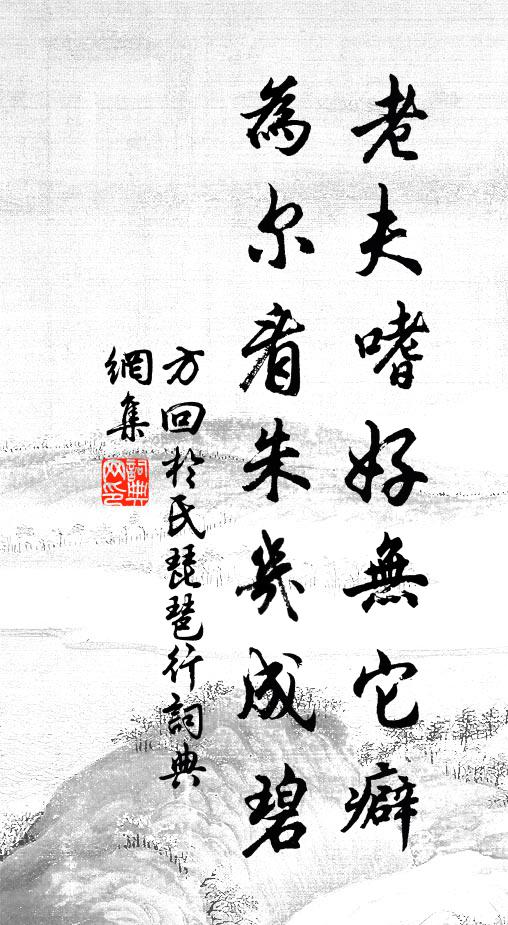 老夫嗜好無它癖
為尔看朱幾成碧
方回於氏琵琶行詞典
網集
詞典
网印